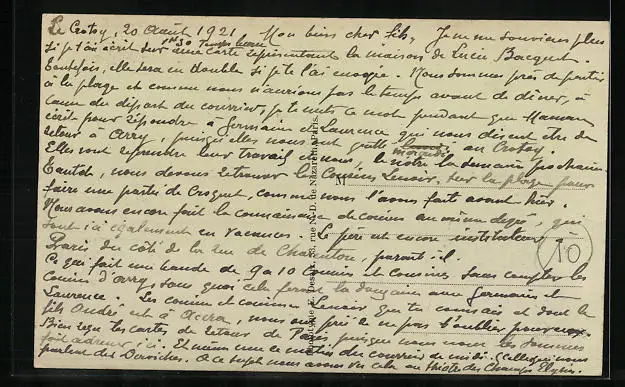 Le Crotoy, 20 Août 1921. Mon bien cher fils, Je ne me souviens plus
si je t'ai écrit sur une carte représentant la maison de Lucien Bacquet.
Toutefois, elle sera en double si je te l'ai envoyée. Nous sommes près de partir
à la plage et comme nous n'aurions pas le temps avant de dîner, à
cause du départ du courrier, je te mets ce mot pendant que Maman
écrit pour répondre à Germaine et Laurence qui nous disent être de
retour à Arry, puisqu'elles nous ont quitté au Crotoy.
Elles vont reprendre leur travail et nous, le nôtre la semaine prochaine.
Tantôt, nous devons retrouver les Cousins Lenoir, sur la plage pour
faire une partie de Croquet, comme nous l'avons fait avant hier.
Nous avons encore fait la connaissance de cousins au même degré, qui
sont ici également en vacances. Le père est encore instituteur à
Paris du côté de la rue de Charenton, paraît-il.
Ce qui fait une bande de 9 à 10 cousins et cousines sans compter les
cousins d'Arry, sans quoi cela ferait la douzaine avec Germaine et
Laurence. Les cousin et cousine Lenoir que tu connais et dont le
fils André est à Accra, nous ont prié de ne pas l'oublier
Bien reçu tes cartes de retour de Paris, puisque nous nous les sommes
fait adresser ici. Et même une ce matin du courrier de midi. Celle qui nous
parlant des Derviches. A ce sujet nous avons vu cela au théâtre des Champs Elysées.
10
M